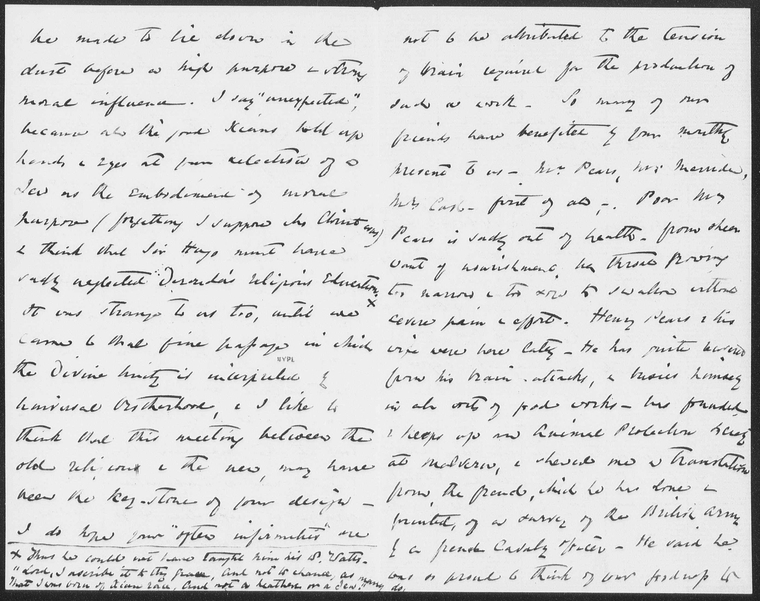 be made to lie down in the
dust before a high purpose & strong
moral influence. I say "unexpected",
because all the good Xians hold up
hands & eyes at your selection of a
Jew as the Embodiment of moral
purpose (forgetting I suppose who Christ was)
& think that Sir Hugo must have
sadly neglected Deronda's religious Education x
It was strange to us too, until we
came to that fine passage in which
NYPL
the Divine Unity is interpreted by
Universal Brotherhood, & I like to
think that this meeting between the
old religion & the new, may have
been the key-stone of your design -
I do hope your "often infirmities" are
x Thus he could not have taught him his Dr. Watts -
"Lord, I ascribe it to thy grace, And not to chance, as many do,
That I was born of Xian race, And not a heathen or a Jew."
not to be attributed to the tension
of brain required for the production of
such a work - So many of our
friends have benefited by your monthly
present to us - Mrs Pears, Mrs
Mrs Cash - first of all -. Poor Mrs
Pears is sadly out of health - from sheer
want of nourishment, her throat proving
too narrow & too sore to swallow without
severe pain & effort. Henry Pears & his
wife were here lately - He has quite
from his brain-attacks, & busies himself
in all sorts of good works - has founded
& keeps up an Animal Protection Society
at Malvern, & showed me a translation
from the french, which he has done &
printed, of a survey of the British Army
by a french Cavalry Officer - He said he
was so proud to think of our
to